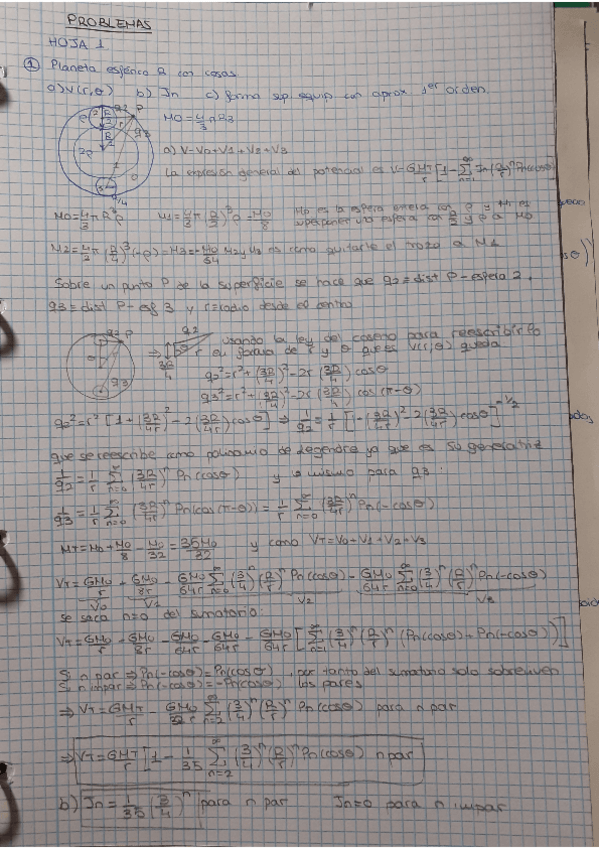 PROBLEMAS
HOJA 1
① Planeta esférico R con cosas
a) V(r,θ) b) Jn c) forma sup. equip con aprox 1er orden.
M0=4/3 πR3
a) V=V0+V1+V2+V3
La expresión general del potencial es V=GMT/r [1-∑ n=1 ∞ Jn (R/r)^n Pn(cosθ)
M0=4/3 πR^3ρ M1=4/3 π(R/2)^3ρ=M0/8 M0 es la esfera entera con ρ y M1 es
superponer una esfera con R/2 y ρ a M0
M2=4/3 π(R/4)^3(-ρ)=M3=-M0/64 M2 y M3 es como quitarle el trozo a M1
Sobre un punto P de la superficie se hace que q2=dist P-esfera 2,
q3=dist P-esf 3 y r=radio desde el centro
usando la ley del coseno para reescribirlo
en forma de r y θ que es V(r,θ) queda
q2^2=r^2+(3R/4)^2-2r(3R/4)cosθ
q3^2=r^2+(3R/4)^2-2r(3R/4)cos(π-θ)
q2^2=r^2[1+(3R/4r)^2-2(3R/4r)cosθ] ⇒ 1/q2=1/r[1-(3R/4r)^2-2(3R/4r)cosθ]^-1/2
que se reescribe como polinomio de Legendre ya que es su generatriz
1/q2=1/r ∑ (3R/4r)^n Pn(cosθ) y lo mismo para q3:
1/q3=1/r ∑ n=0 ∞ (3R/4r)^n Pn(cos(π-θ))=1/r ∑ n=0 ∞ (3R/4r)^n Pn(-cosθ)
MT=M0+M0/8-M0/32=35M0/32 y como VT=V0+V1+V2+V3
VT=GM0/r+GM0/8r-GM0/64r ∑ n=0 ∞ (3/4)^n(R/r)^n Pn(cosθ)-GM0/64r ∑ n=0 ∞ (3/4)^n(R/r)^n Pn(-cosθ)
V0 V1 V2 V3
se saca n=0 del sumatorio:
VT=GM0/r+GM0/8r-GM0/64r-GM0/64r-GM0/64r[∑ n=1 ∞ (3/4)^n(R/r)^n(Pn(cosθ)+Pn(-cosθ))]
Si n par ⇒ Pn(-cosθ)=Pn(cosθ)
Si n impar ⇒ Pn(-cosθ)=-Pn(cosθ) , por tanto del sumatorio solo sobreviven los pares
⇒ VT=GMT/r-GM0/32r ∑ n=2 ∞ (3/4)^n(R/r)^n Pn(cosθ) para n par
⇒ VT=GMT/r[1-1/35 ∑ n=2 ∞ (3/4)^n(R/r)^n Pn(cosθ) n par
b) Jn=1/35(3/4)^n para n par Jn=0 para n impar